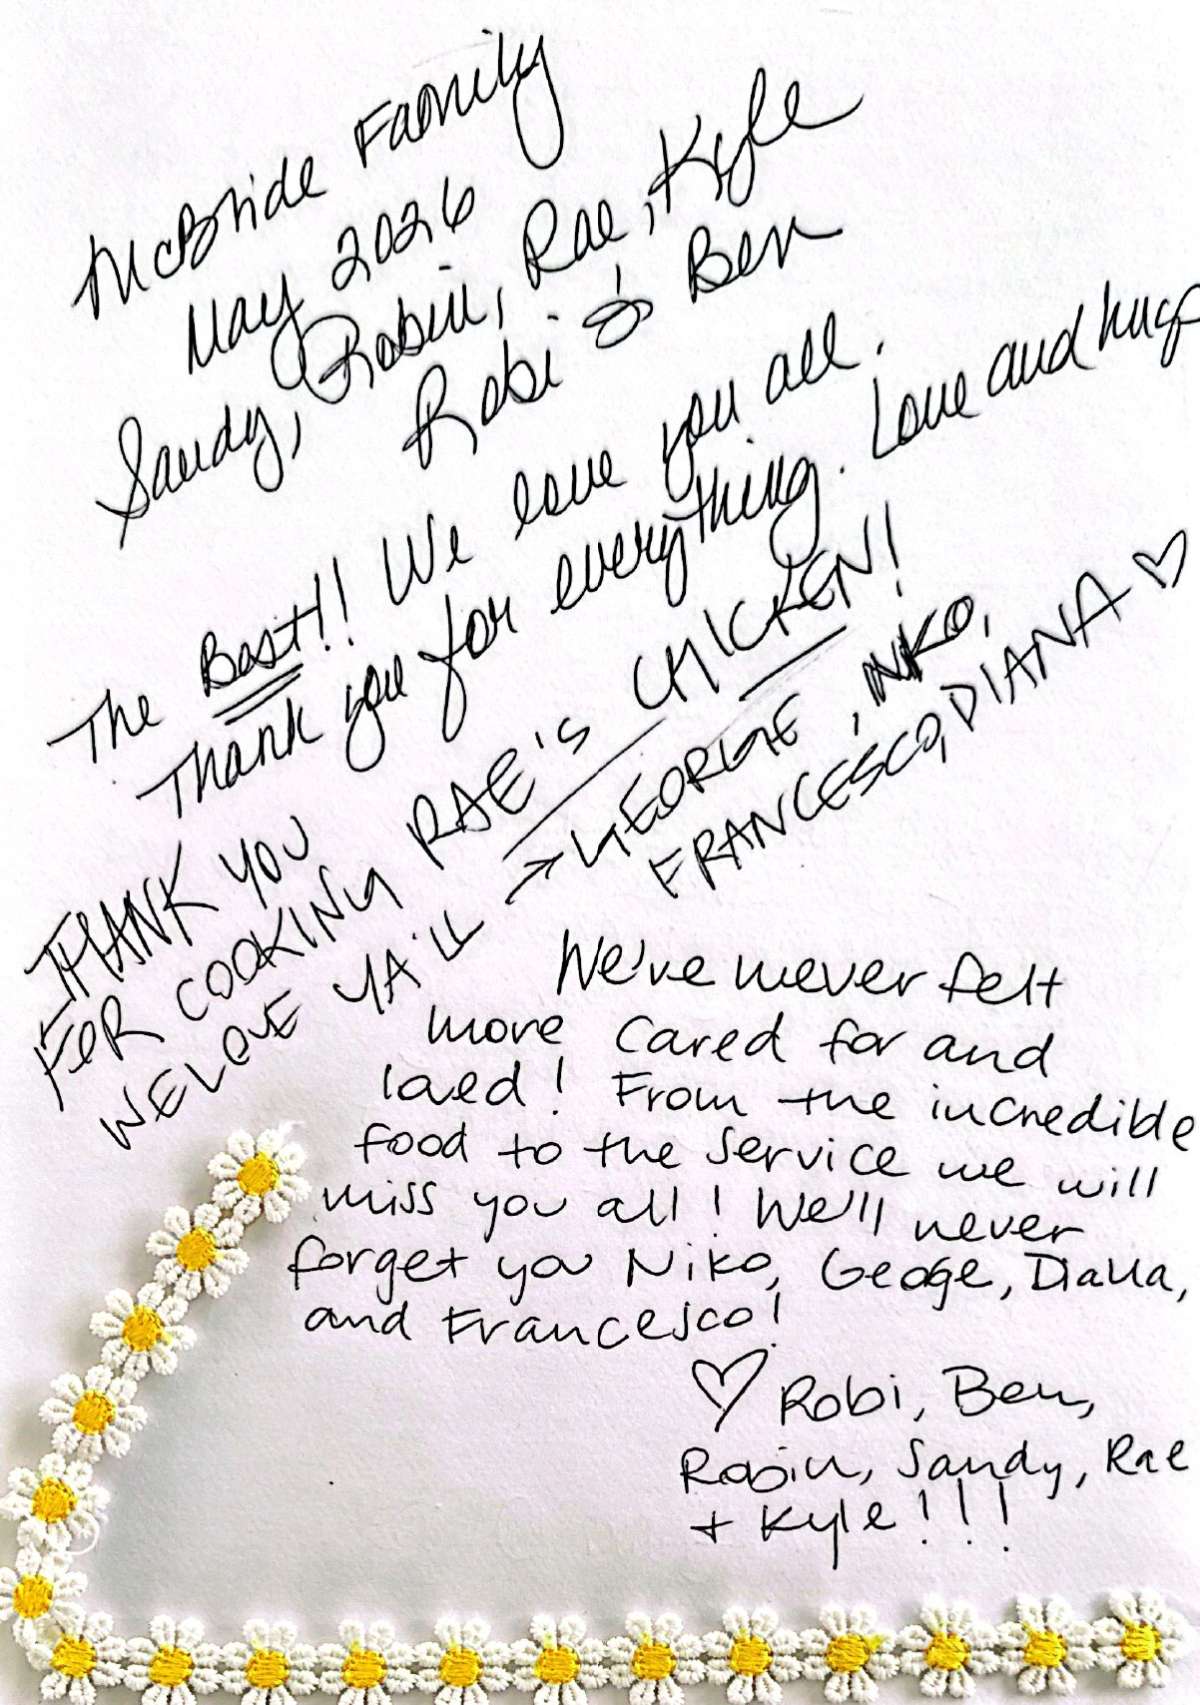 McBride Family
May 2026
Sandy, Robin, Rae, Kyle
Robi & Ben
The Best!! We love you all.
Thank you for everything. Love and hugs
THANK YOU
FOR COOKING RAE'S CHICKEN!
WE LOVE YA'LL → GEORGE, NIKO,
FRANCESCO, DIANA ♡
We've never felt
more cared for and
loved! From the incredible
food to the service we will
miss you all! We'll never
forget you Niko, Geoge, Diana,
and Francesco!
♡ Robi, Ben,
Robin, Sandy, Rae
+ Kyle!!!